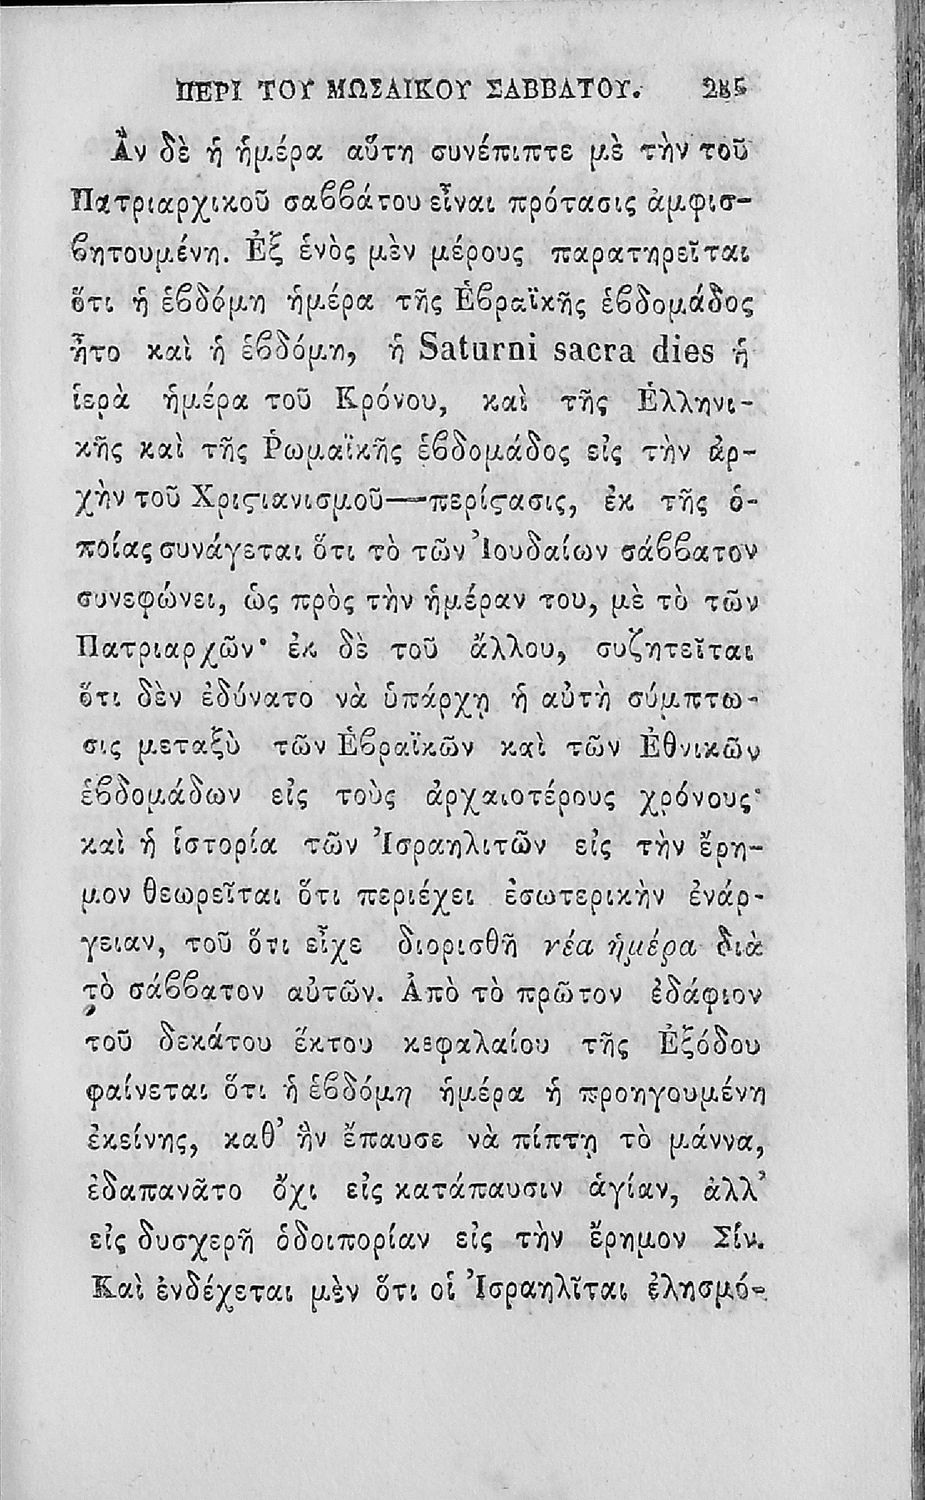 ΠΕΡΙ ΤΟΥ ΜΩΣΑΙΚΟΥ ΣΑΒΒΑΤΟΥ. 285
Ἂν δὲ ἡ ἡμέρα αὕτη συνέπιπτε μὲ τὴν τοῦ
Πατριαρχικοῦ σαϐϐάτου εἶναι πρότασις ἀμφισ-
ϐητουμένη. Ἐξ ἑνὸς μὲν μέρους παρατηρεῖται
ὅτι ἡ ἑϐδόμη ἡμέρα τῆς Ἑϐραϊκῆς ἑϐδομάδος
ἦτο καὶ ἡ ἑϐδόμη, ἡ Saturni sacra dies ἡ
ἱερὰ ἡμέρα τοῦ Κρόνου, καὶ τῆς Ἑλληνι-
κῆς καὶ τῆς Ῥωμαϊκῆς ἑϐδομάδος εἰς τὴν ἀρ-
χὴν τοῦ Χριϛιανισμοῦ—περίϛασις, ἐκ τῆς ὁ-
ποίας συνάγεται ὅτι τὸ τῶν Ἰουδαίων σάϐϐατον
συνεφώνει, ὡς πρὸς τὴν ἡμέραν του, μὲ τὸ τῶν
Πατριαρχῶν· ἐκ δὲ τοῦ ἄλλου, συζητεῖται
ὅτι δὲν ἐδύνατο νὰ ὑπάρχῃ ἡ αὐτὴ σύμπτω-
σις μεταξὺ τῶν Ἑϐραϊκῶν καὶ τῶν Ἐθνικῶν
ἑϐδομάδων εἰς τοὺς ἀρχαιοτέρους χρόνους·
καὶ ἡ ἱστορία τῶν Ἰσραηλιτῶν εἰς τὴν ἔρη-
μον θεωρεῖται ὅτι περιέχει ἐσωτερικὴν ἐνάρ-
γειαν, τοῦ ὅτι εἶχε διορισθῆ νέα ἡμέρα διὰ
τὸ σάϐϐατον αὐτῶν. Ἀπὸ τὸ πρῶτον ἐδάφιον
τοῦ δεκάτου ἕκτου κεφαλαίου τῆς Ἐξόδου
φαίνεται ὅτι ἡ ἑϐδόμη ἡμέρα ἡ προηγουμένη
ἐκείνης, καθ᾽ ἣν ἔπαυσε νὰ πίπτῃ τὸ μάννα,
ἐδαπανᾶτο ὄχι εἰς κατάπαυσιν ἁγίαν, ἀλλ᾽
εἰς δυσχερῆ ὁδοιπορίαν εἰς τὴν ἔρημον Σίν.
Καὶ ἐνδέχεται μὲν ὅτι οἱ Ἰσραηλῖται ἐλησμό-